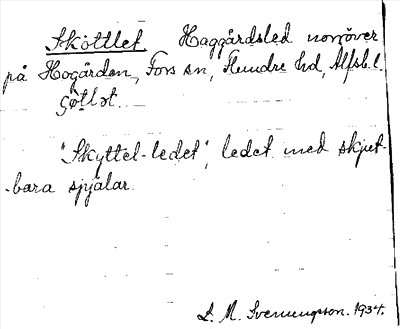 Sköttlet Haggårdsled norröver
på Hogården, Fors sn, Flundre hd, Älfsb. l.
"Skyttel-ledet", ledet med skjut-
-bara sjyalar.
S. M. Svenungson. 1934.